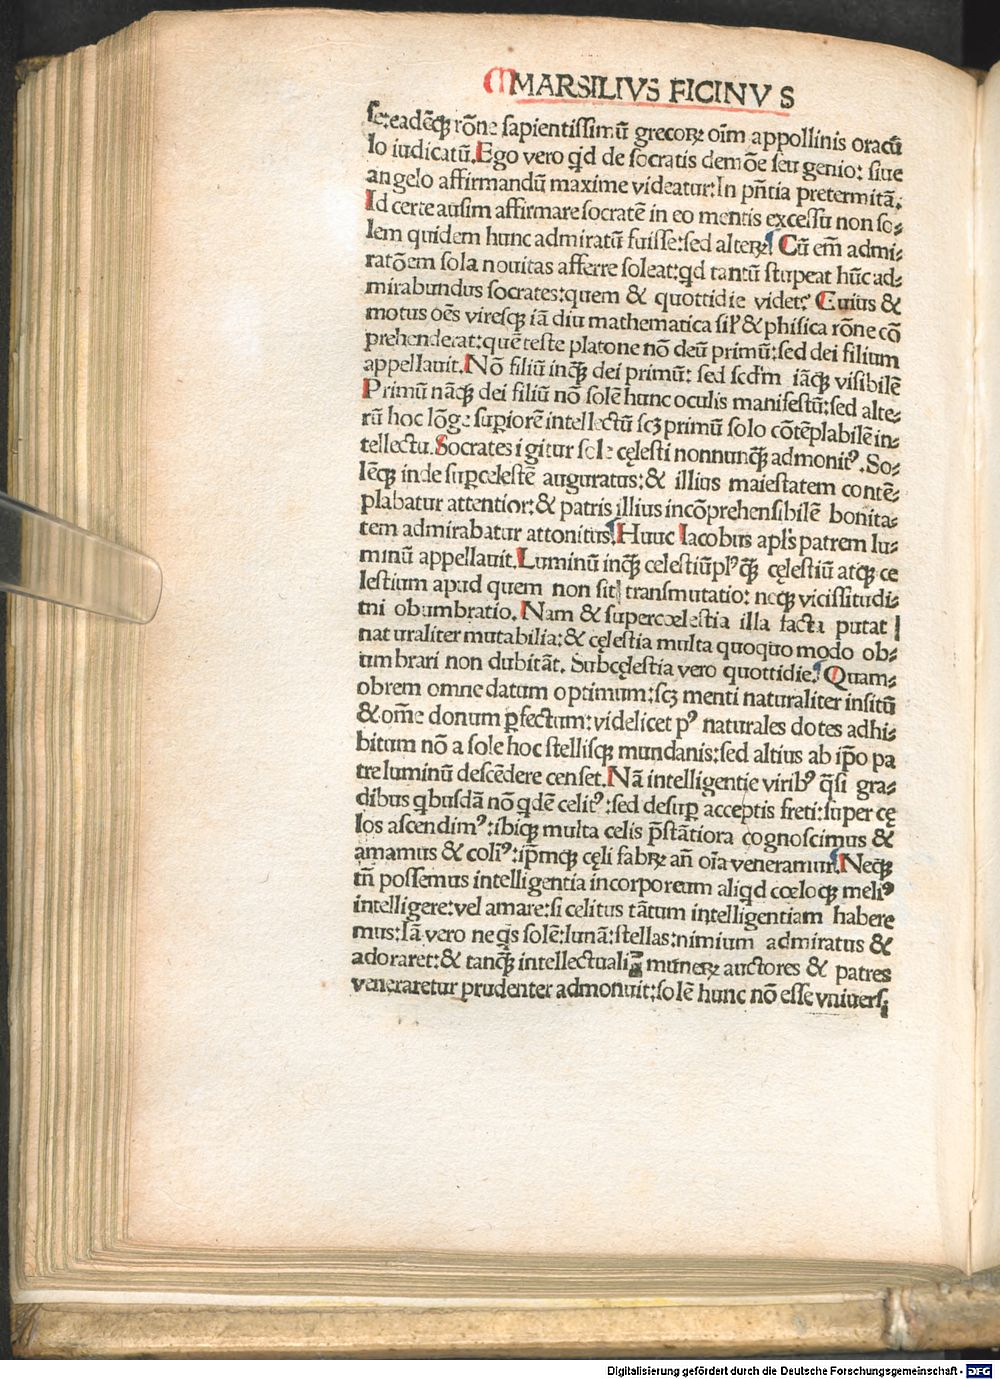 MARSILIVS FICINVS
se:eadēq; rōne sapientissimū grecoꝝ oīm appollinis oracu
lo iudicatū. Ego vero qd de socratis demōe seu genio: siue
angelo affirmandū maxime videatur: In pn̄tia pretermitā.
Id certe ausim affirmare socratē in eo mentis excessu non so-
lem quidem hunc admiratū fuisse: sed alteꝝ. Cū em̄ admi-
ratōem sola nouitas afferre soleat: qd tantū stupeat hūc ad-
mirabundus socrates: quem & quottidie videt? Cuius &
motus oēs viresq; iā diu mathematica sil' & phisica rōne cō
prehenderat: quē teste platone nō deū primū: sed dei filium
appellauit. Nō filiū inq̄ dei primū: sed scd'm iāq; visibilē
Primū nāq; dei filiū nō solē hunc oculis manifestū: sed alte-
rū hoc lōge supiorē intellectū scꝫ primū solo cōtēplabilē in-
tellectu. Socrates igitur sole cęlesti nonnunq̄ admonitꝰ. So-
lēq; inde supcelestē auguratus: & illius maiestatem contē-
plabatur attentior: & patris illius incōprehensibilē bonita-
tem admirabatur attonitus. Hunc Iacobus apl's patrem lu-
minū appellauit. Luminū inq̄ celestiū plꝰ q̄ cęlestiū atq; ce
lestium apud quem non sit transmutatio: neq; vicissitudi-
tni obumbratio. Nam & supercœlestia illa facta putat
naturaliter mutabilia: & cęlestia multa quoquo modo ob-
umbrari non dubitāt. Subcęlestia vero quottidie. Quam-
obrem omne datum optimum: scꝫ menti naturaliter insitū
& om̄e donum pfectum: videlicet pꝰ naturales dotes adhi-
bitum nō a sole hoc stellisq; mundanis: sed altius ab ip̄o pa
tre luminū descēdere censet. Nā intelligentie viribꝰ q̄si gra-
dibus qbusdā nō qdē celitꝰ: sed desup acceptis freti: super cę
los ascendimꝰ: ibiq; multa celis p̄stātiora cognoscimus &
amamus & colīꝰ: ip̄mq; cęli fabꝝ an̄ oīa veneramur. Neq;
tn̄ possemus intelligentia incorporeum aliqd cœloq; meliꝰ
intelligere: vel amare: si celitus tātum intelligentiam habere
mus: Iā vero ne qs solē: lunā: stellas: nimium admiratus &
adoraret: & tanq̄ intellectualiū muneꝝ auctores & patres
veneraretur prudenter admonuit: solē hunc nō esse vniuersi
Digitalisierung gefördert durch die Deutsche Forschungsgemeinschaft - DFG